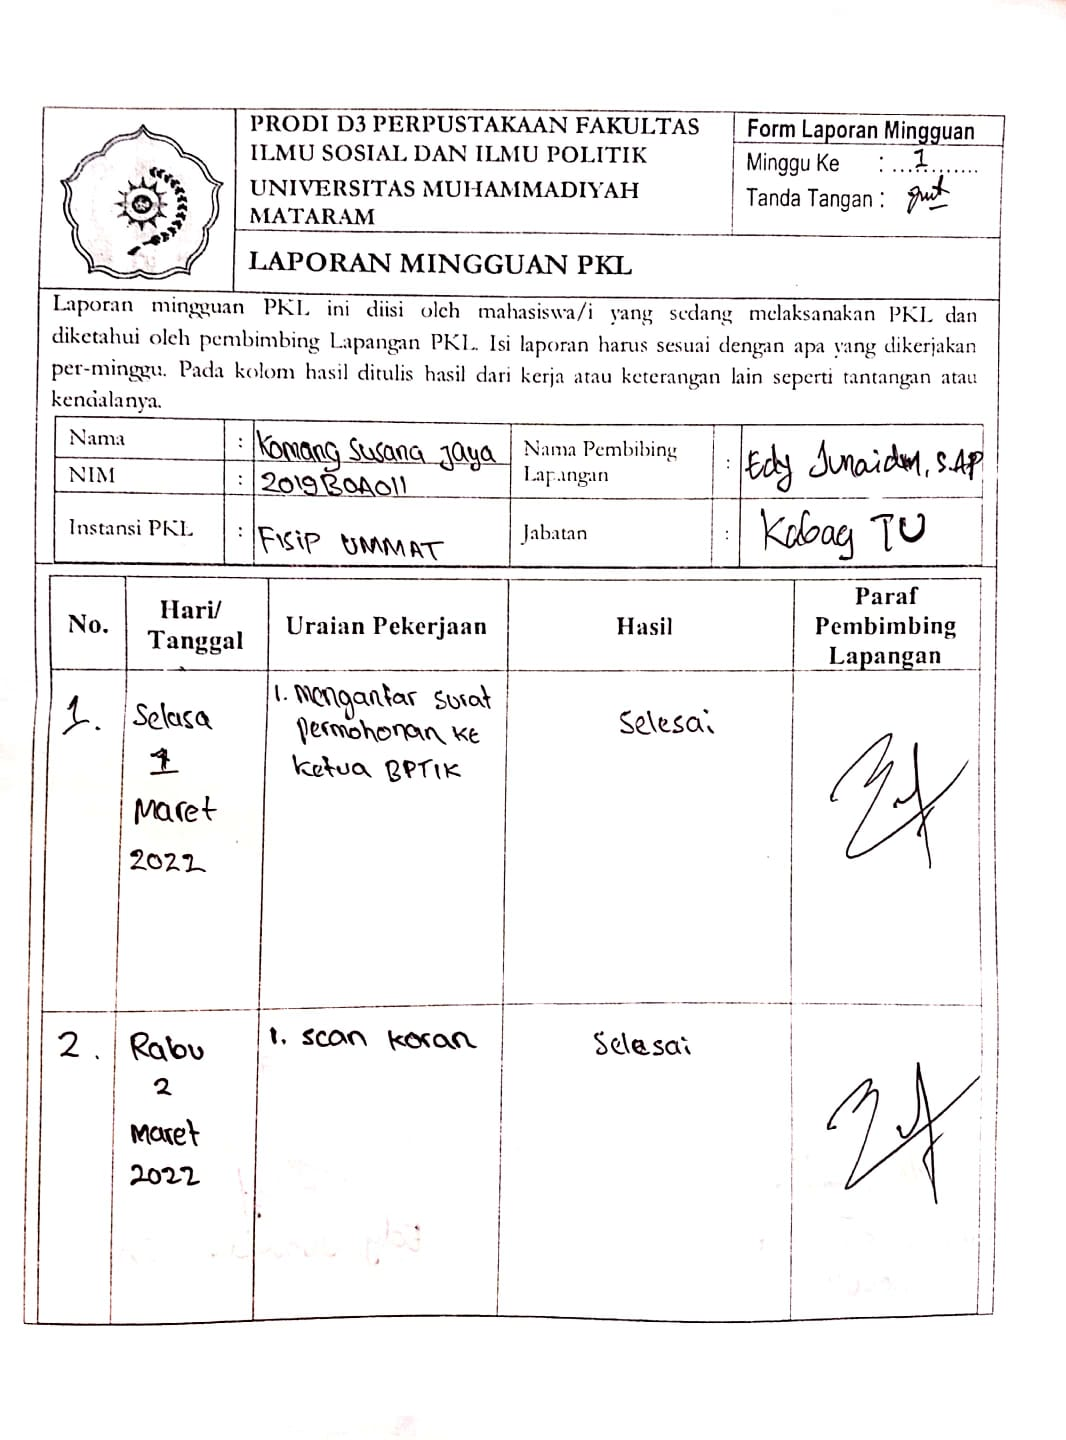 PRODI D3 PERPUSTAKAAN FAKULTAS
ILMU SOSIAL DAN ILMU POLITIK
UNIVERSITAS MUHAMMADIYAH
MATARAM
LAPORAN MINGGUAN PKL
Form Laporan Mingguan
Minggu Ke : ...1...........
Tanda Tangan :
Laporan mingguan PKL ini diisi oleh mahasiswa/i yang sedang melaksanakan PKL dan
diketahui oleh pembimbing Lapangan PKL. Isi laporan harus sesuai dengan apa yang dikerjakan
per-minggu. Pada kolom hasil ditulis hasil dari kerja atau keterangan lain seperti tantangan atau
kendalanya.
Nama : Komang Susana Jaya
NIM : 2019B0A011
Instansi PKL : FISIP UMMAT
Nama Pembibing
Lapangan : Edy Junaidin, S.AP
Jabatan : Kabag TU
No.
Hari/
Tanggal
Uraian Pekerjaan
Hasil
Paraf
Pembimbing
Lapangan
1.
Selasa
1
Maret
2022
1. Mengantar surat
permohonan ke
ketua BPTIK
Selesai
2.
Rabu
2
Maret
2022
1. scan koran
Selesai